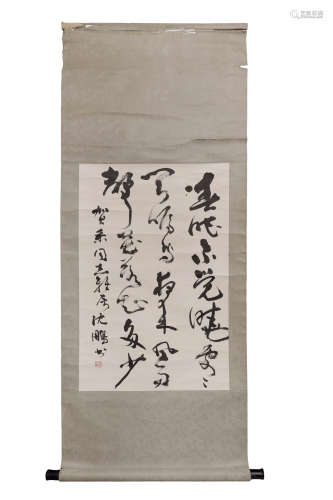 春眠不觉晓处〻
闻啼鸟夜来风雨
声花落知多少
贺东同志雅属沈鹏书